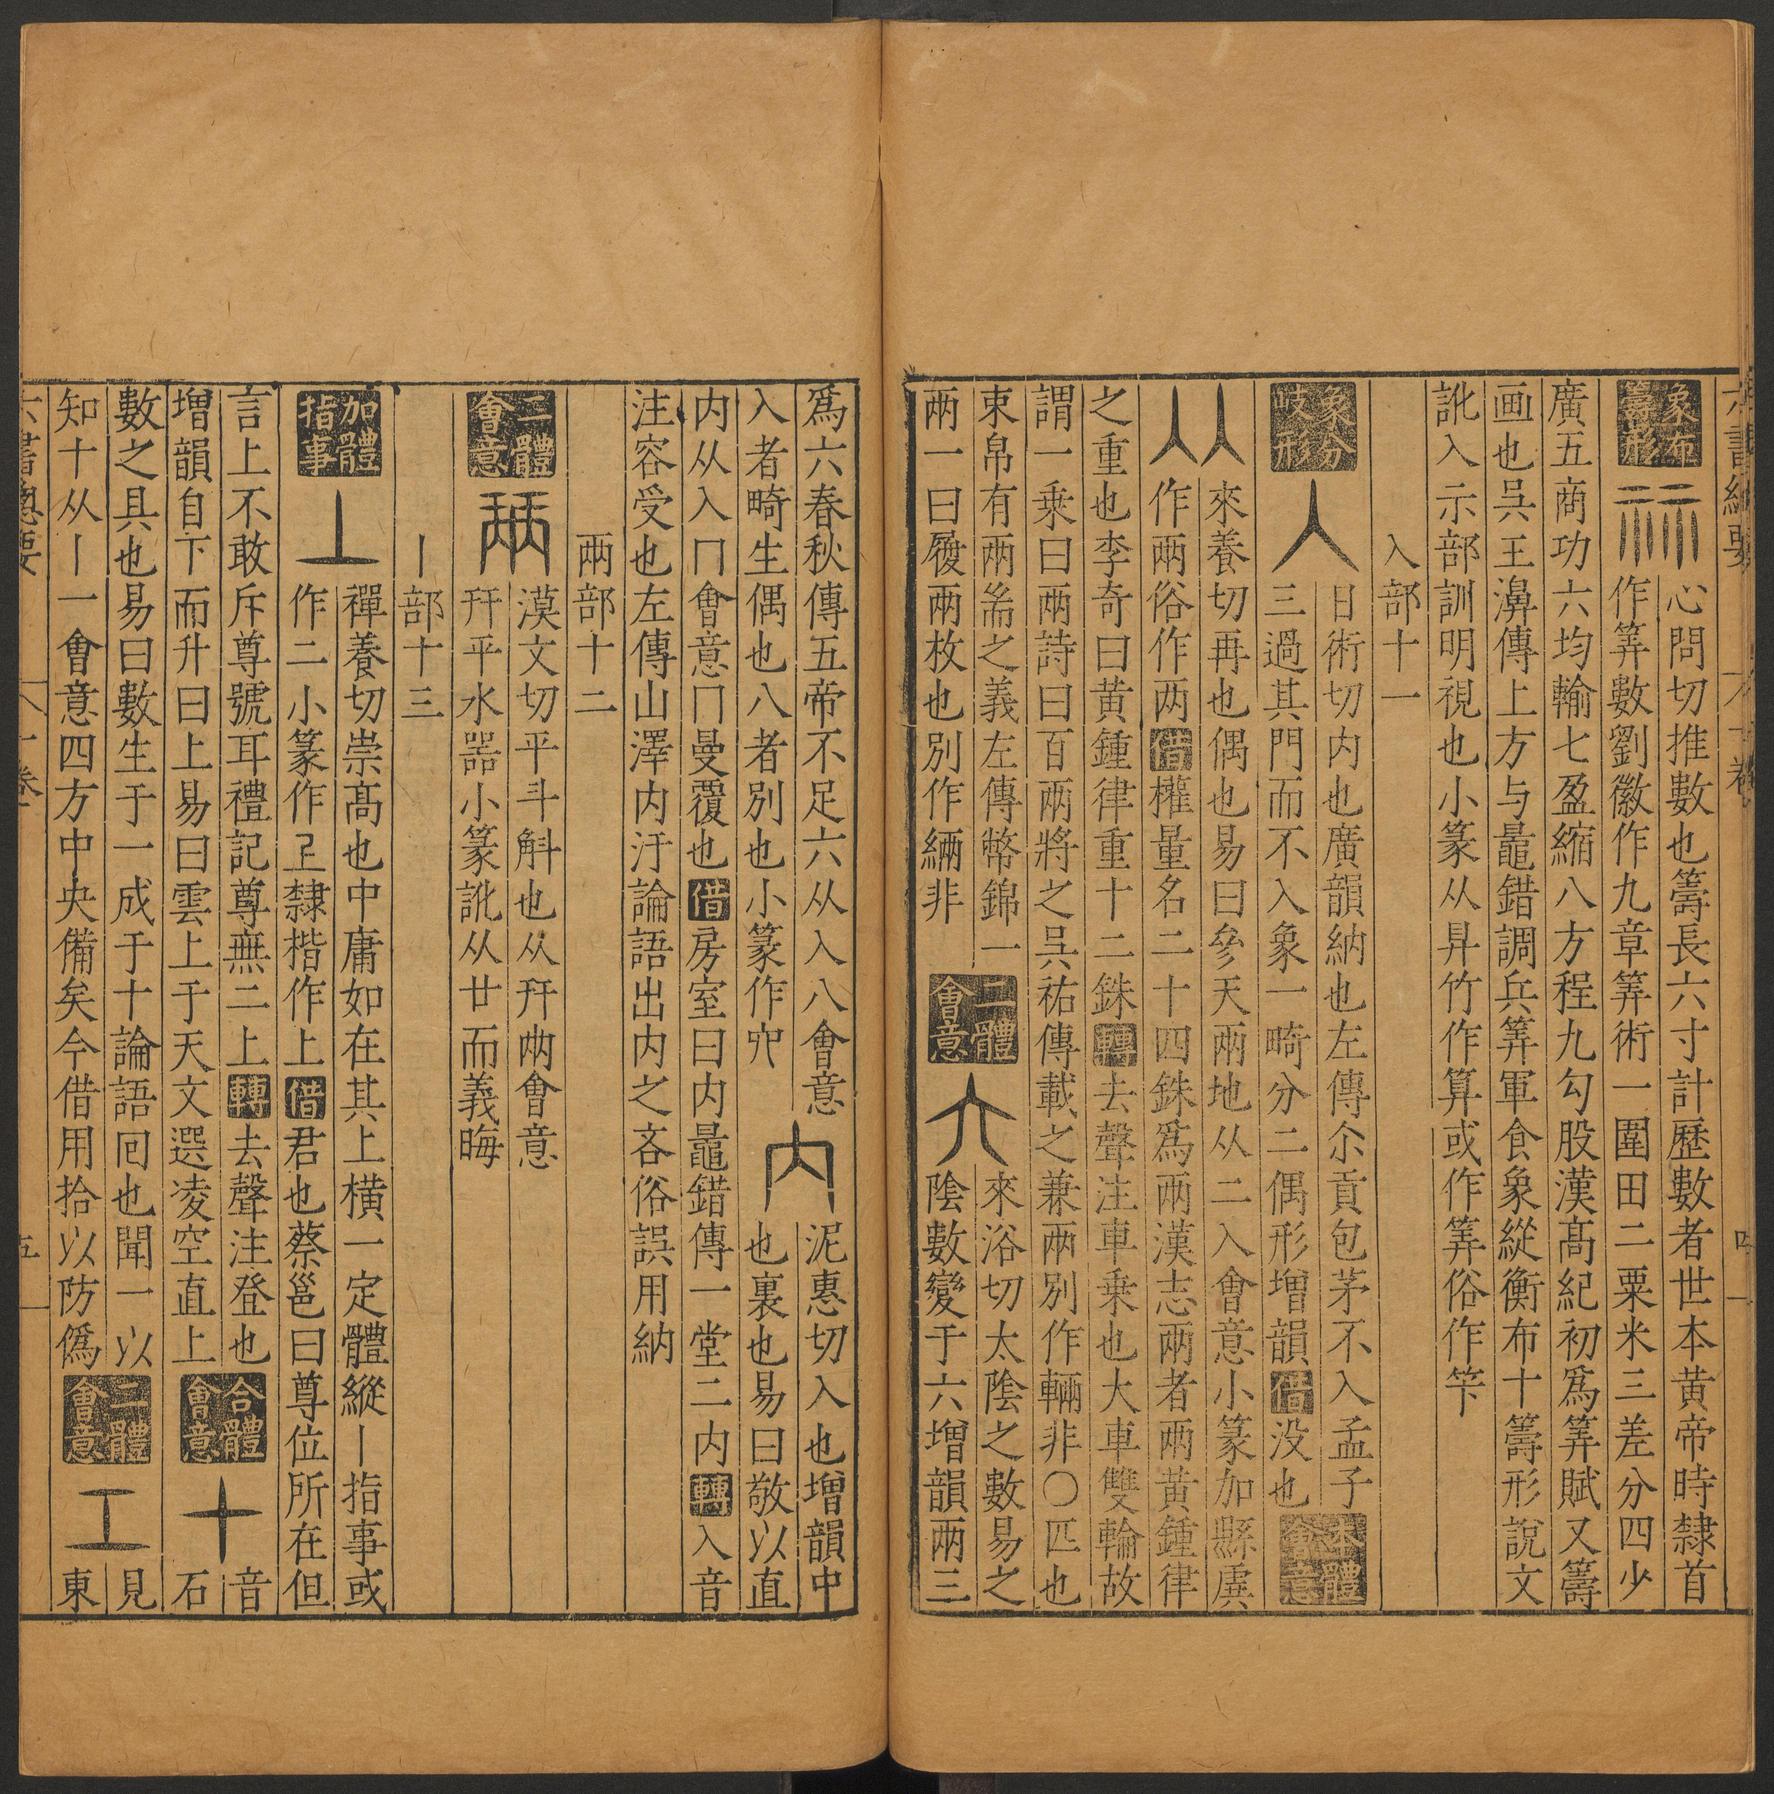 象布
籌形
心問切推數也籌長六寸計歷數者世本黃帝時隸首
作筭數劉徽作九章筭術一圍田二粟米三差分四少
廣五商功六均輸七盈縮八方程九勾股漢髙紀初爲筭賦又籌
画也呉王濞傳上方与鼂錯調兵筭軍食象縱衡布十籌形說文
訛入示部訓明視也小篆从昇竹作算或作筭俗作笇
入部十一
象分
岐形
日術切内也廣韻納也左傳尒貢包茅不入孟子
三過其門而不入象一畸分二偶形增韻借没也
本體
會意
來養切再也偶也易曰參天兩地从二入會意小篆加縣虡
作兩俗作两借權量名二十四銖爲兩漢志兩者兩黃鍾律
之重也李奇曰黃鍾律重十二銖轉去聲注車乗也大車雙輪故
謂一乗曰兩詩曰百兩將之呉祐傳載之兼兩别作輛非〇匹也
束帛有兩耑之義左傳幣錦一
兩一曰履兩枚也别作緉非
二體
會意
來浴切太陰之數易之
陰數變于六增韻兩三
爲六春秋傳五帝不足六从入八會意
入者畸生偶也八者别也小篆作𠔀
内
泥惠切入也增韻中
也裏也易曰敬以直
内从入冂會意冂曼覆也借房室曰内鼂錯傳一堂二内轉入音
注容受也左傳山澤内汙論語出内之吝俗誤用納
兩部十二
二體
會意
漠文切平斗斛也从幵㒳會意
幵平水噐小篆訛从廿而義晦
丨部十三
加體
指事
丄
禪養切崇髙也中庸如在其上横一定體縱丨指事或
作二小篆作𠄞隸楷作上借君也蔡邕曰尊位所在但
言上不敢斥尊號耳禮記尊無二上轉去聲注登也
增韻自下而升曰上易曰雲上于天文選凌空直上
合體
會意
十
音
石
數之具也易曰數生于一成于十論語囘也聞一以
知十从丨一會意四方中央備矣今借用拾以防僞
二體
會意
工
見
東